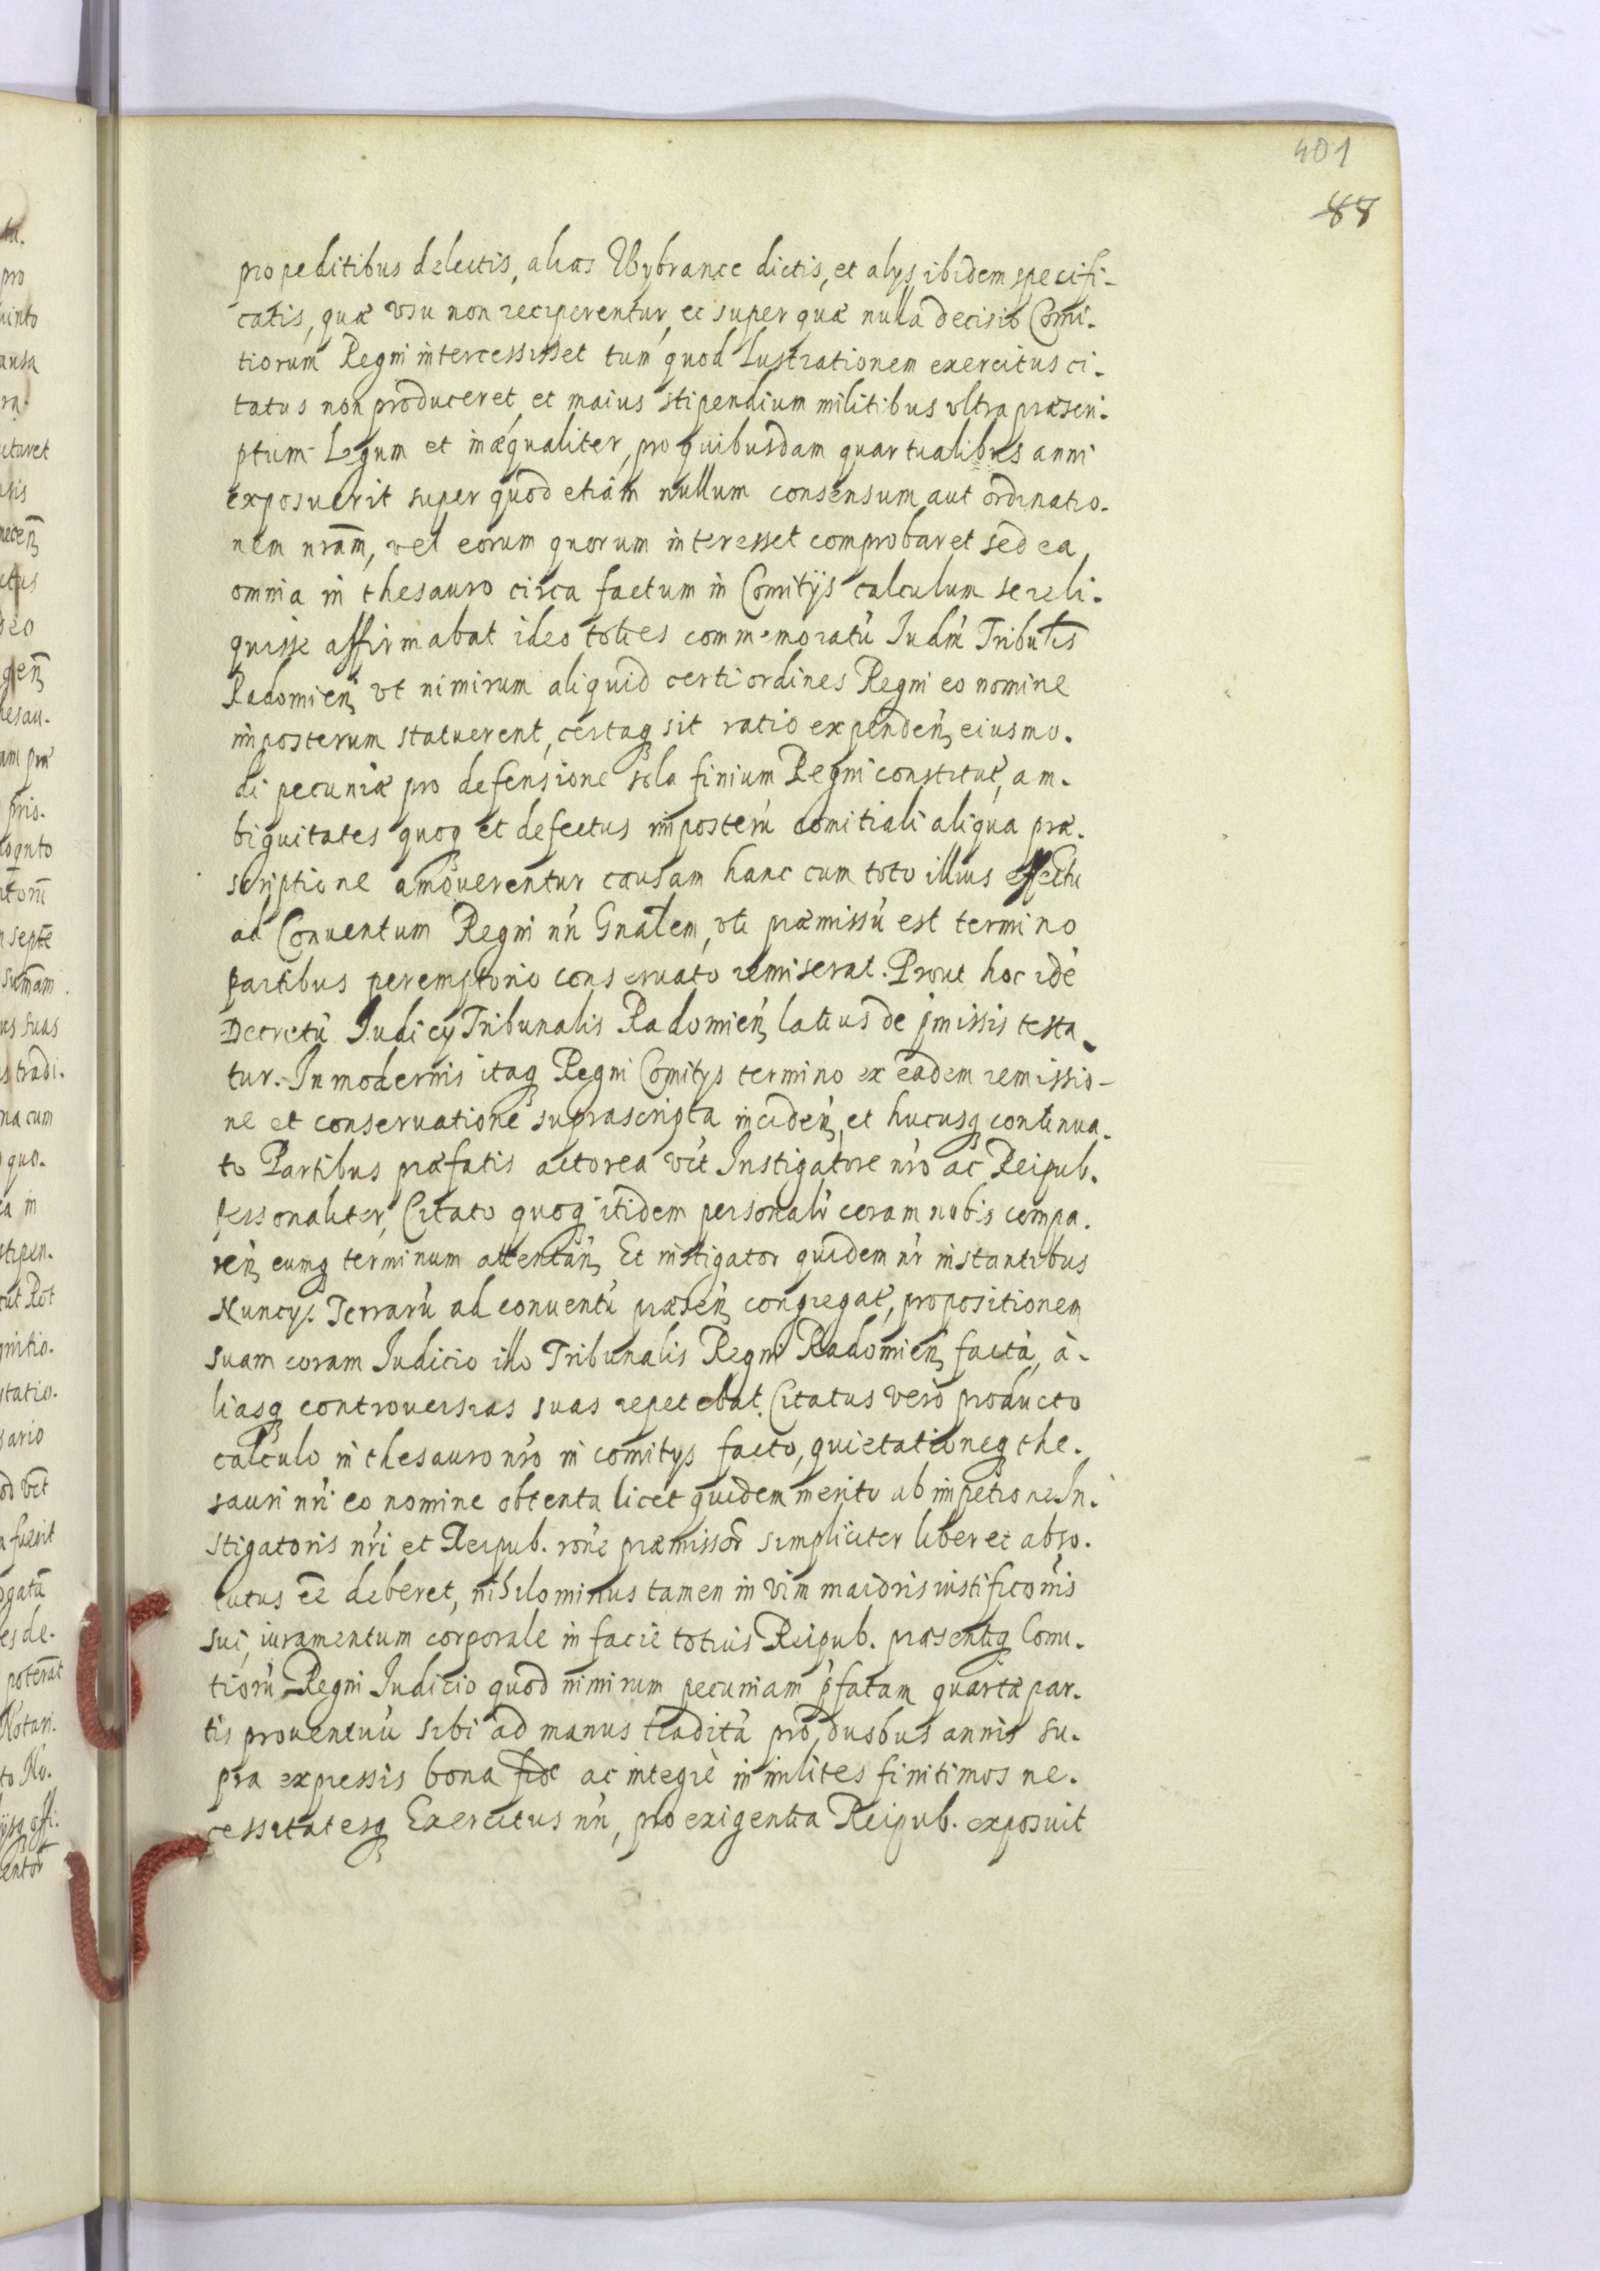 401
88
pro peditibus delectis, alias Wybrance dictis, et alys ibidem specifi-
catis, quæ vsu non reciperentur, et super quæ nulla decisio Comi-
tiorum Regni intercessisset tum quod lustrationem exercitus ci-
tatus non produceret et maius stipendium militibus vltra præscri-
ptum Legum et inæqualiter, pro quibusdam quartualibus anni
exposuerit super quod etiam nullum consensum aut ordinatio-
nem nrãm, vel eorum quorum interesset comprobaret sed ea
omnia in thesauro circa factum in Comitÿs calculum se reli-
quisse affirmabat ideo toties commemoratũ Iudm̃ Tribulis̃
Radomien̄ vt nimirum aliquid certi ordines Regni eo nomine
imposterum statuerent, certaq sit ratio expenden̄ eiusmo-
di pecuniæ pro defensione sola finium Regni constitut̃, am-
biguitates quoq et defectus imposterũ comitiali aliqua præ-
scriptione amouerentur causam hanc cum toto illius effectu
ad Conuentum Regni nr̃i Gnãlem, vti præmissũ est termino
partibus peremptorio conseruato remiserat. Prout hoc idẽ
Decretũ Iudicy Tribunalis Radomien̄ latius de p̃missis testa-
tur. In modernis itaq Regni Comitys termino ex eadem remissio-
ne et conseruatione suprascripta inciden̄, et hucusq continua-
to Partibus præfatis actorea vt̃ Instigatore nr̃o ac Reipub.
personaliter, Citato quoq itidem personalr̃ coram nobis compa-
ren̄ eumq terminum attentan̄ Et instigator quidem nr̃ instantibus
Nuncys Terrarũ ad conuentũ præsen̄ congregat̃, propositionem
suam coram Iudicio illo Tribunalis Regni Radomien̄ factã, a-
liasq controuersias suas repetebat. Citatus vero producto
calculo in thesauro nr̃o in comitys facto, quietationeq the-
sauri nr̃i eo nomine obtenta licet quidem merito ab impetione In-
stigatoris nr̃i et Reipub. rõne præmissor̃ simpliciter liber et abso-
lutus eẽ deberet, nihilominus tamen in vim maioris iustificõnis
sui, iuramentum corporale in facie totius Reipub. præsentiq Comi-
tiorũ Regni Iudicio quod nimirum pecuniam p̃fatam quartæ par-
tis prouentuũ sibi ad manus traditã pro duobus annis su-
pra expressis bona fide ac integrè in milites finitimos ne-
cessitatesq Exercitus nr̃i, pro exigentia Reipub. exposuit